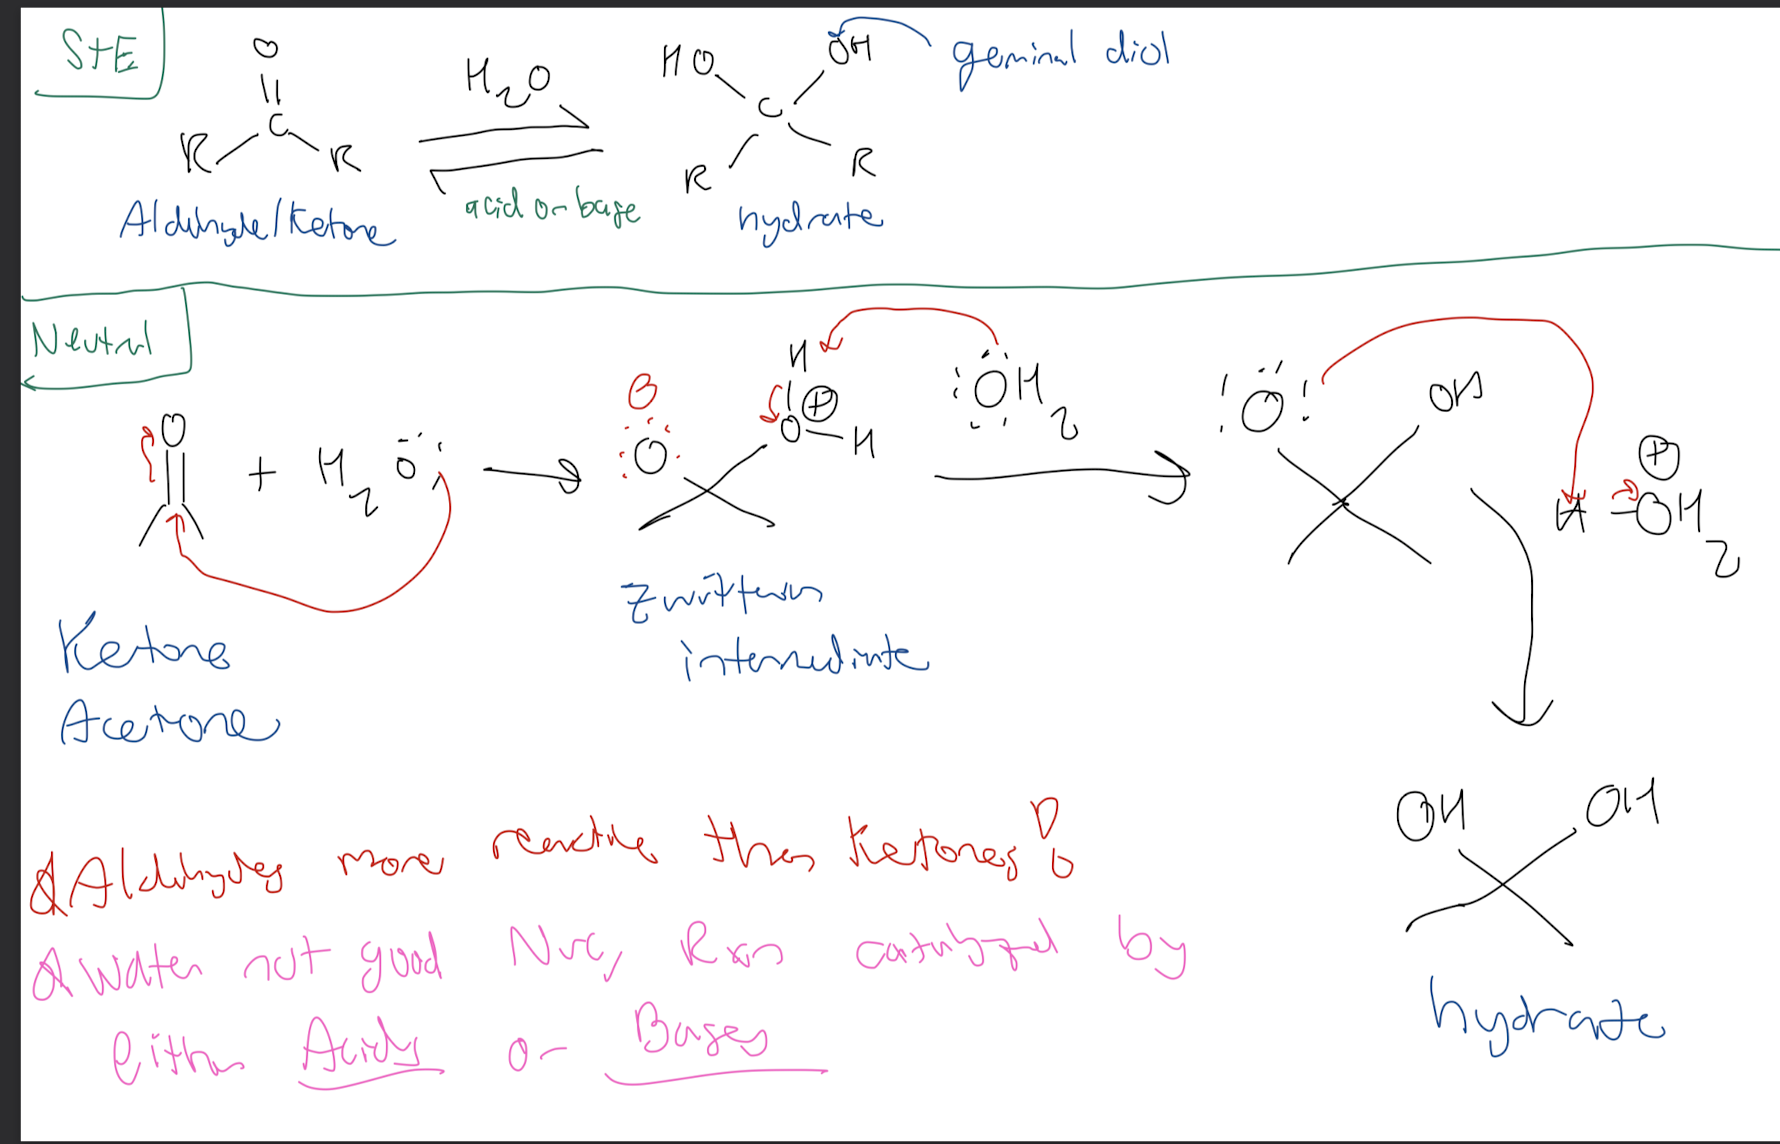 StE
O
||
C
R R
H₂O
acid or base
HO OH
C
R R
geminal diol
Aldehyde/Ketone
hydrate
Neutral
O + H₂O:
:O: ⊖
H
O⊕–H
:OH₂
:O: OH
H –OH₂ ⊕
Zwitterion
intermediate
Ketone
Acetone
OH OH
Aldehydes more reactive than Ketones!
water not good Nuc, Rxn catalyzed by
either Acids or Bases
hydrate